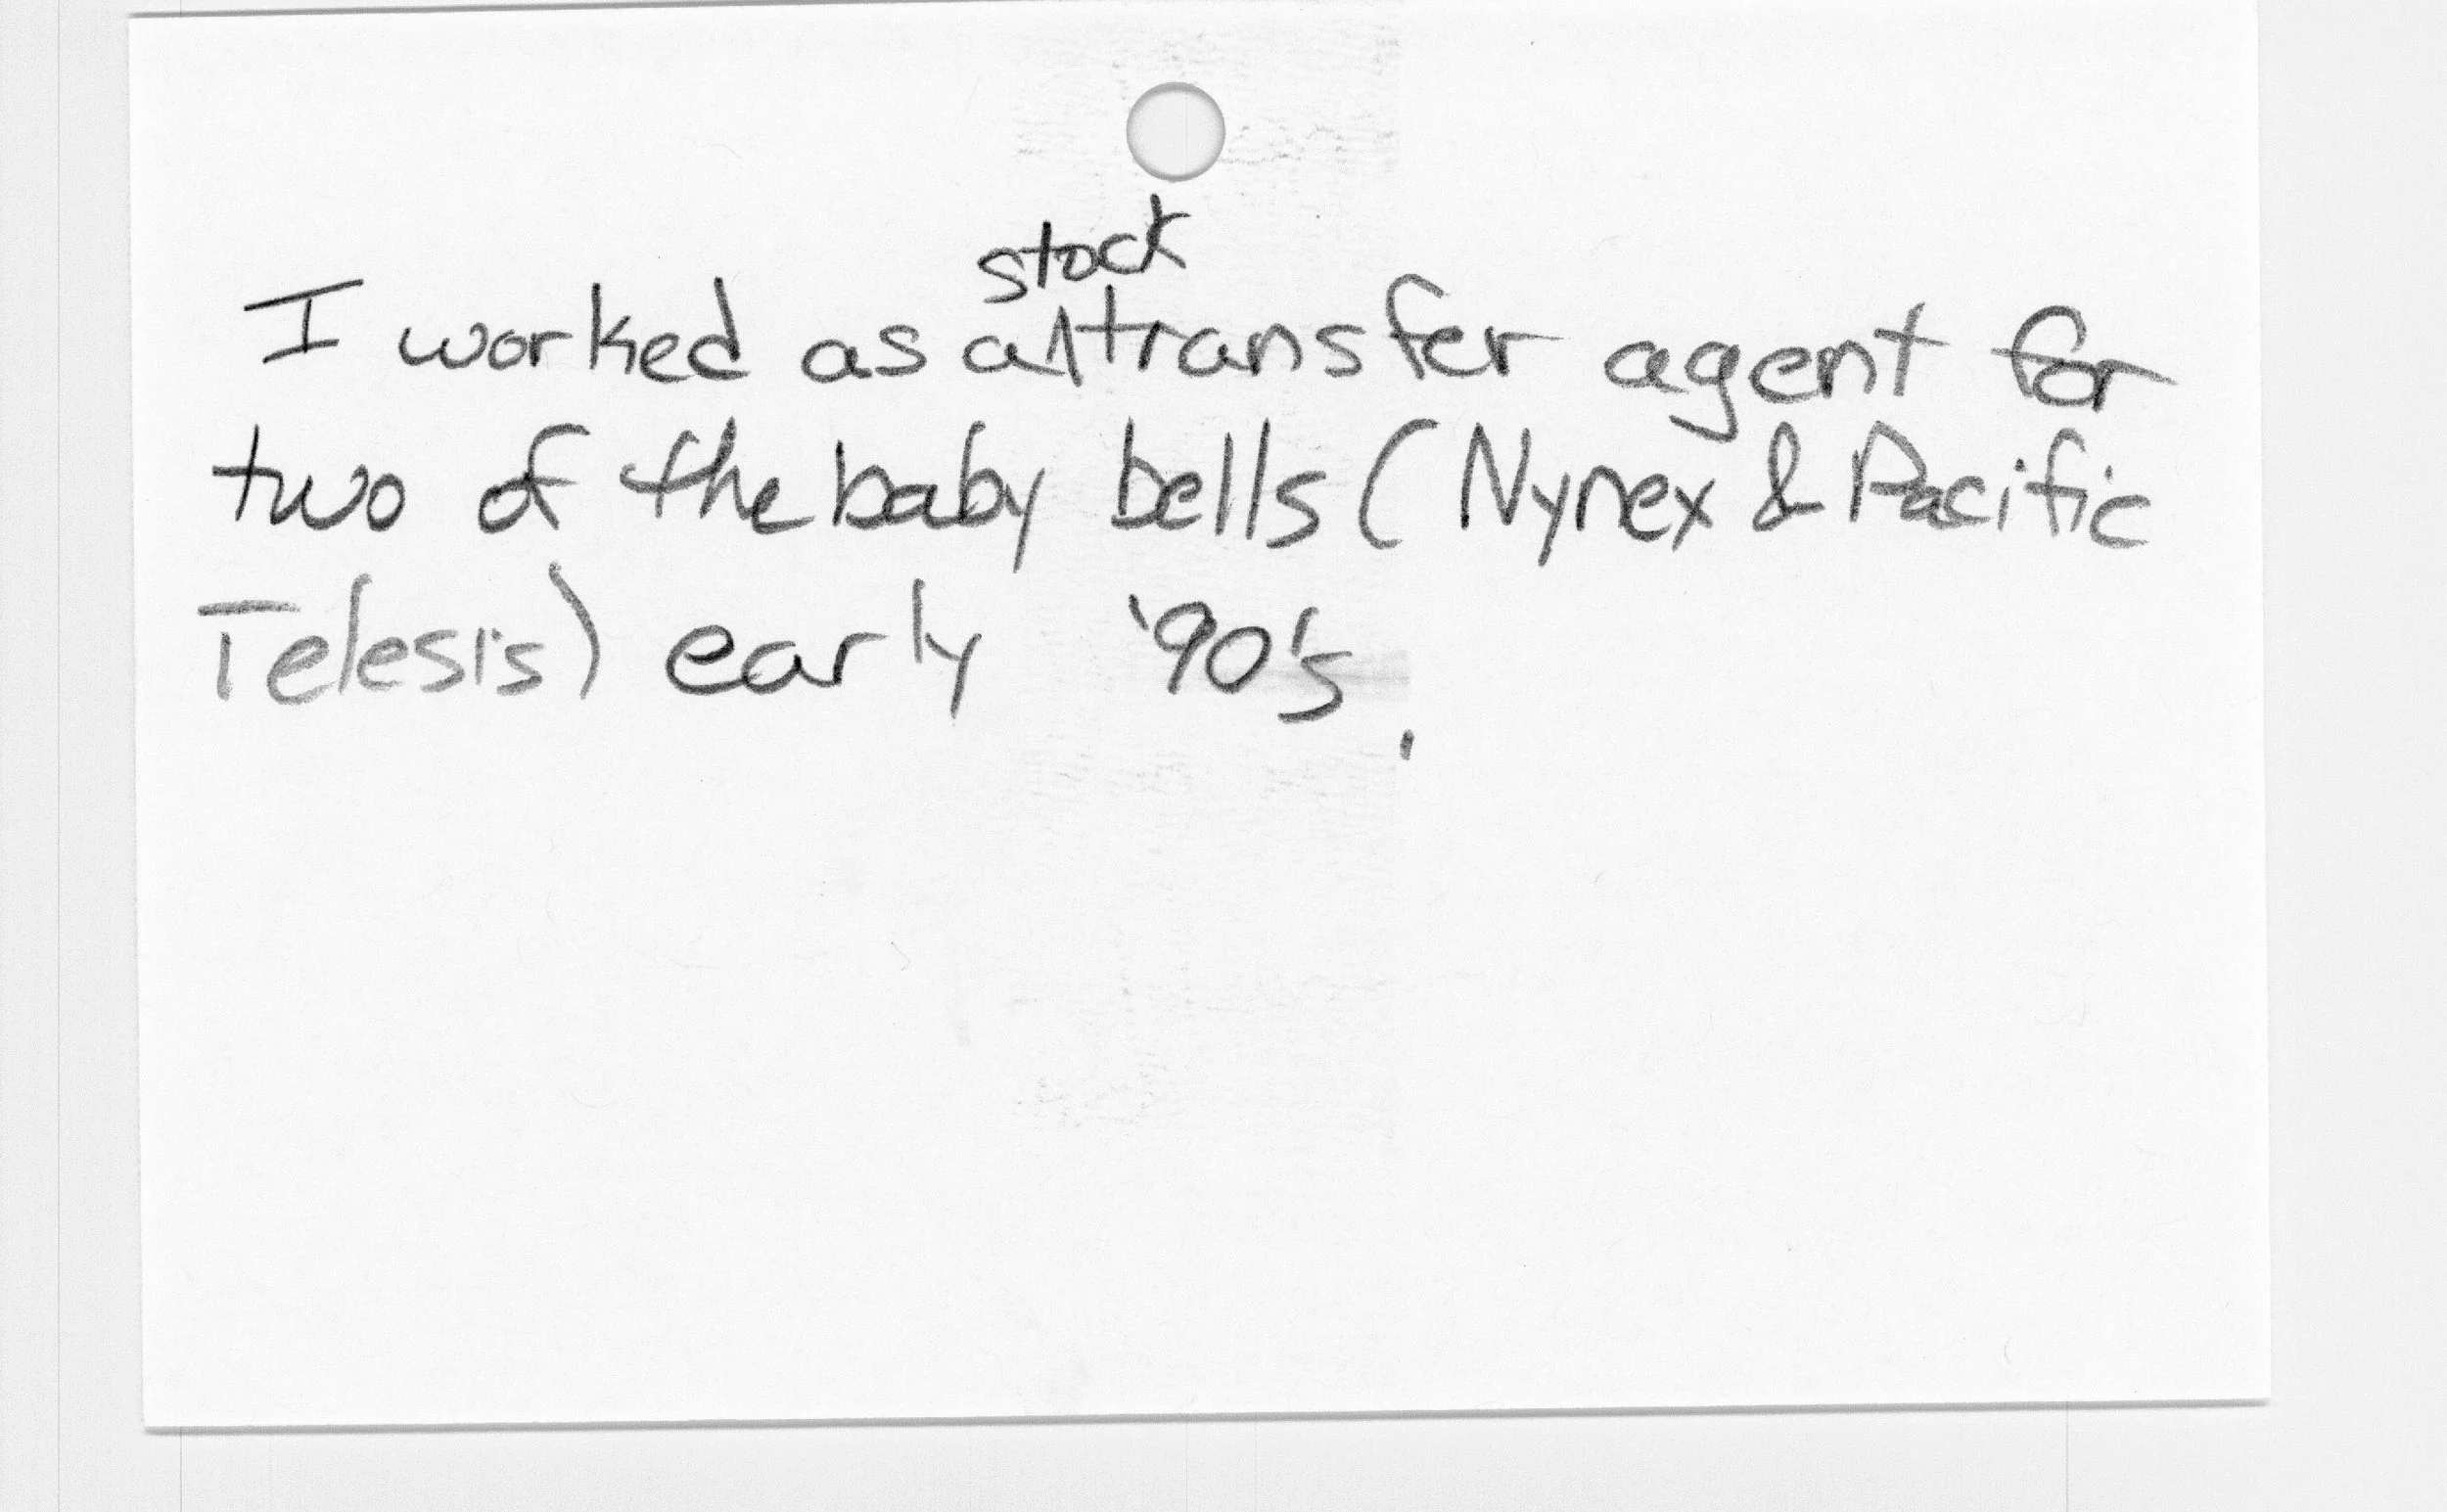 stock
I worked as a^transfer agent for
two of the baby bells (Nynex & Pacific
Telesis) early '90's.